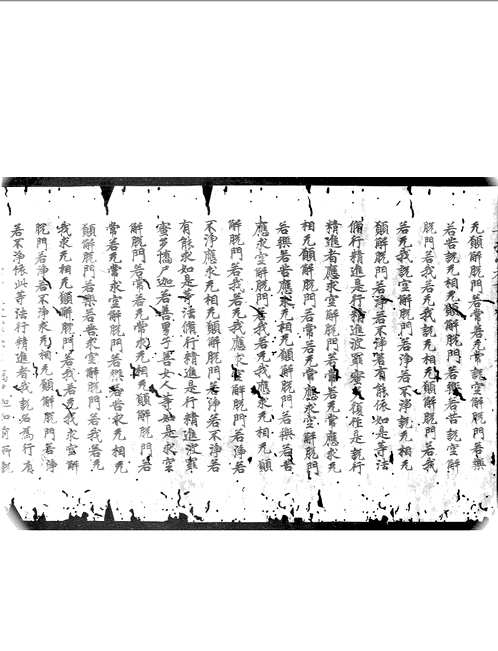 无願解脫門若常若无常說空解脫門若樂
若苦說无相无願解脫門若樂若苦說空解
脫門若我若无我說无相无願解脫門若我
若无我說空解脫門若淨若不淨說无相无
願解脫門若淨若不淨若有能依如是等法
脩行精進是行精進波羅蜜多復作是說行
精進者應求空解脫門若常若无常應求无
相无願解脫門若常若无常應求空解脫門
若樂若苦應求无相无願解脫門若樂若苦
應求空解脫門若我若无我應求无相无願
解脫門若我若无我應求空解脫門若淨若
不淨應求无相无願解脫門若淨若不淨若
有能求如是等法脩行精進是行精進波羅
蜜多憍尸迦若善男子善女人等如是求空
解脫門若常若无常求无相无願解脫門若
常若无常求空解脫門若樂若苦求无相无
願解脫門若樂若苦求空解脫門若我若无
我求无相无願解脫門若我若无我求空解
脫門若淨若不淨求无相无願解脫門若淨
若不淨依此等法行精進者我說名為行有
所說